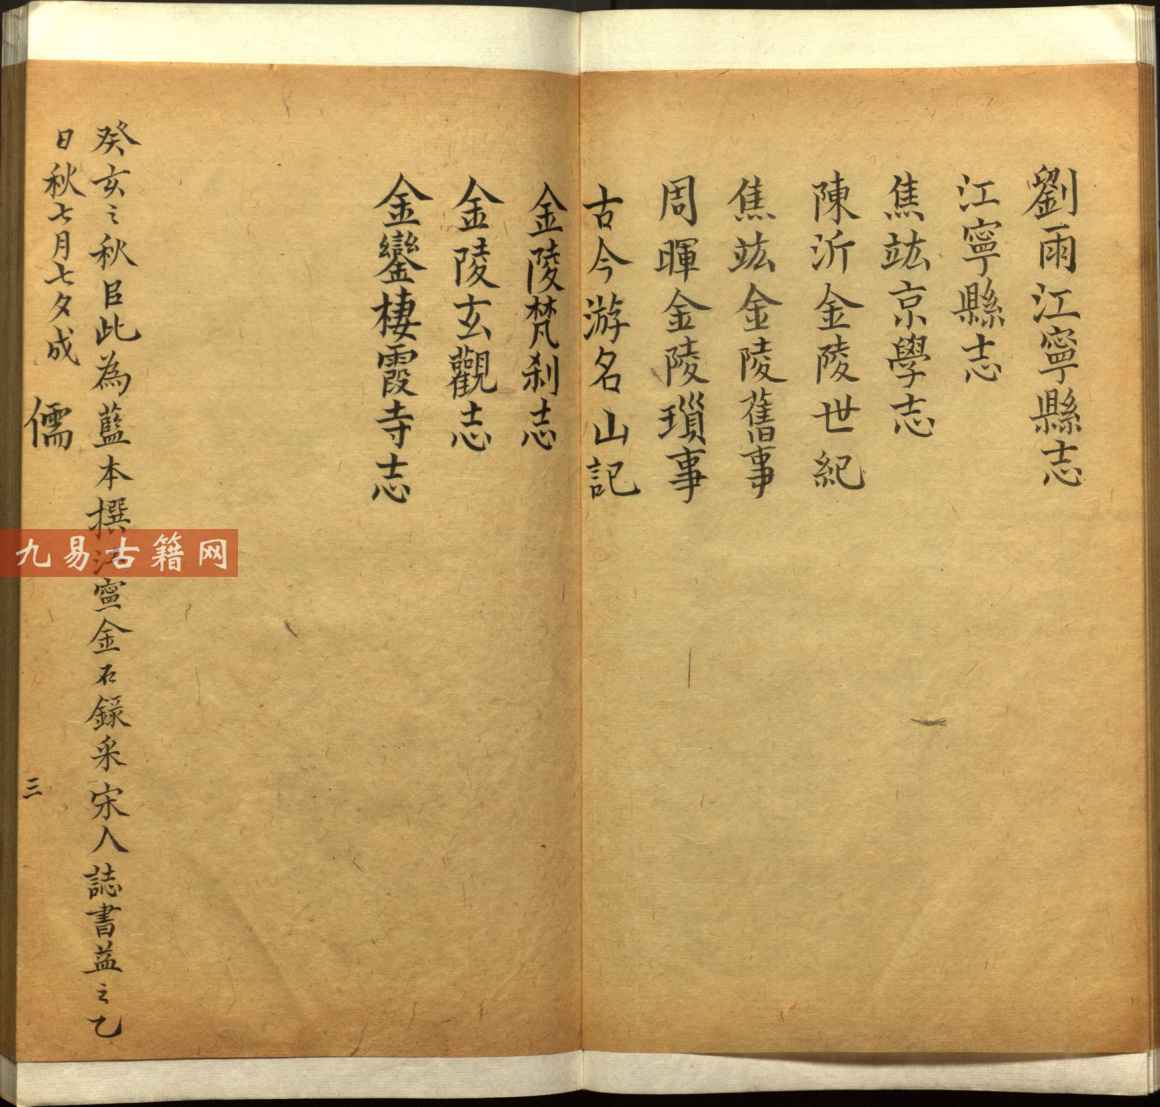 劉雨江寧縣志
江寧縣志
焦竑京學志
陳沂金陵世紀
焦竑金陵舊事
周暉金陵瑣事
古今游名山記
金陵梵刹志
金陵玄觀志
金鑾棲霞寺志
癸亥之秋臣此為藍本撰江寧金石錄采宋人誌書益之乙
日秋七月七夕成
儒
三
九易古籍网